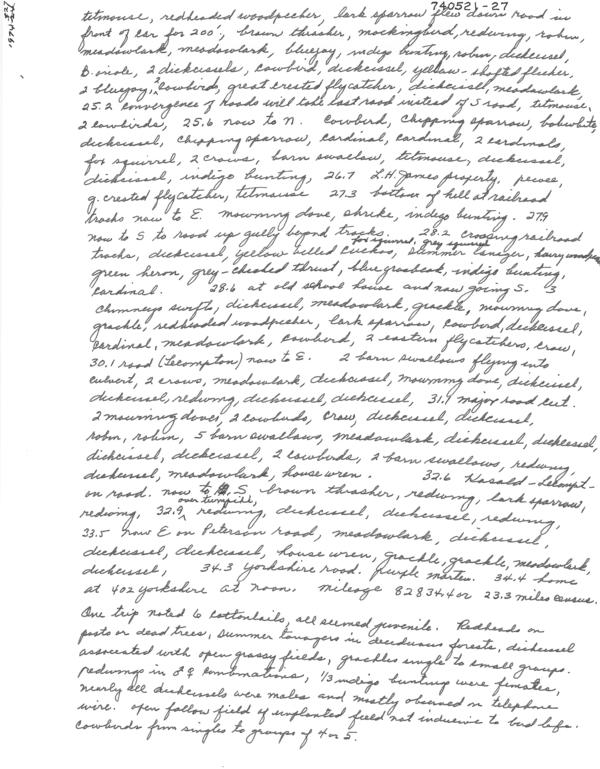 740521-27
titmouse, redheaded woodpecker, lark sparrow flew down road in
front of car for 200', brown thrasher, mockingbird, redwing, robin,
meadowlark, meadowlark, bluejay, indigo bunting, robin, dickcissel,
B. oriole, 2 dickcissels, cowbird, dickcissel, yellow-shafted flicker,
2 bluejay, 2 cowbirds, great crested flycatcher, dickcissel, meadowlark,
25.2 convergence of roads will take last road instead of S road, titmouse,
2 cowbirds, 25.6 now to N. cowbird, chipping sparrow, bobwhite,
dickcissel, chipping sparrow, cardinal, cardinal, 2 cardinals,
fox squirrel, 2 crows, barn swallow, titmouse, dickcissel,
dickcissel, indigo bunting, 26.7 L.H. James property, pewee,
g. crested flycatcher, titmouse 27.3 bottom of hill at railroad
tracks now to E. mourning dove, shrike, indigo bunting. 27.9
now to S to road up gully beyond tracks. 28.2 crossing railroad
fox squirrel, grey squirrel
tracks, dickcissel, yellow billed cuckoo, summer tanager, hairy woodpecker
green heron, grey-cheeked thrust, blue grosbeak, indigo bunting,
cardinal. 28.6 at old school house and now going S. 3
chimneys swifts, dickcissel, meadowlark, grackle, mourning dove,
grackle, redheaded woodpecker, lark sparrow, cowbird, dickcissel,
cardinal, meadowlark, cowbird, 2 eastern flycatchers, crow,
30.1 road (Lecompton) now to E. 2 barn swallows flying into
culvert, 2 crows, meadowlark, dickcissel, mourning dove, dickcissel,
dickcissel, redwing, dickcissel, dickcissel, 31.7 major road cut.
2 mourning doves, 2 cowbirds, crow, dickcissel, dickcissel,
robin, robin, 5 barn swallows, meadowlark, dickcissel, dickcissel,
dickcissel, dickcissel, 2 cowbirds, 2 barn swallows, redwing,
dickcissel, meadowlark, house wren. 32.6 Kasold-Lecompt-
on road. now to S, brown thrasher, redwing, lark sparrow,
over turnpike,
redwing, 32.9 redwing, dickcissel, dickcissel, redwing,
33.5 now E on Peterson road, meadowlark, dickcissel,
dickcissel, dickcissel, house wren, grackle, grackle, meadowlark,
dickcissel, 34.3 Yorkshire road. purple martin. 34.4 home
at 402 Yorkshire at noon. mileage 82834.4 or 23.3 miles census.
One trip noted 6 cottontails, all seemed juvenile. Redheads on
posts or dead trees, summer tanagers in deciduous forests, dickcissel
associated with open grassy fields, grackles single to small groups.
redwings in ♂♀ combinations, 1/3 indigo buntings were females,
nearly all dickcissels were males and mostly observed on telephone
wire. open fallow field of unplanted field not inducive to bird life.
Cowbirds from singles to groups of 4 or 5.